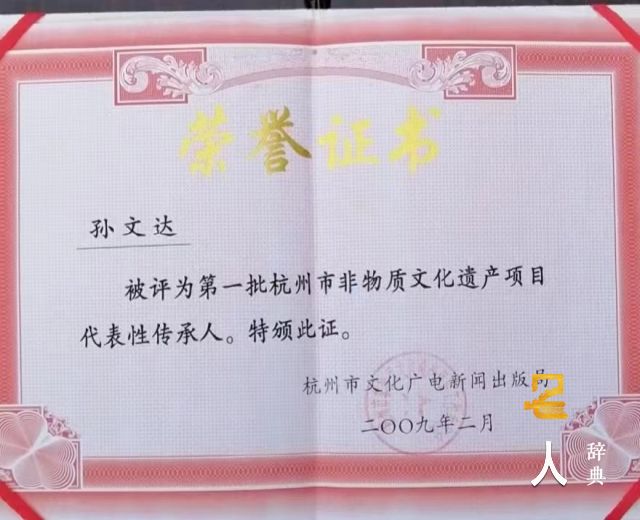 荣誉证书
孙文达
被评为第一批杭州市非物质文化遗产项目
代表性传承人。特颁此证。
杭州市文化广电新闻出版局
二〇〇九年二月
人
辞典